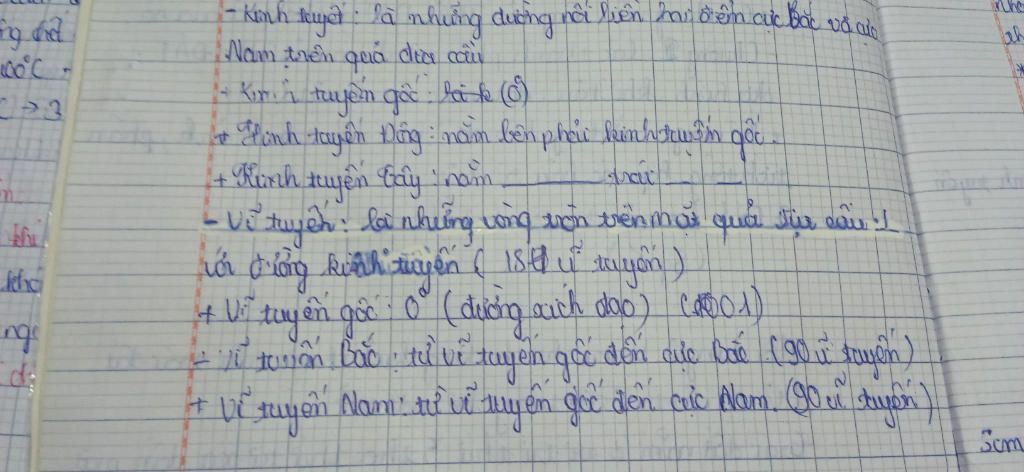 - Kinh tuyến: là những đường nối liền hai điểm cực Bắc và cực
Nam trên quả địa cầu
+ Kinh tuyến gốc: (0°)
+ Kinh tuyến Đông: nằm bên phải kinh tuyến gốc.
+ Kinh tuyến Tây: nằm ______ trái __ __
- Vĩ tuyến: là những vòng tròn trên mặt quả địa cầu ⊥
với đường kinh tuyến (181 vĩ tuyến)
+ Vĩ tuyến gốc: 0° (đường xích đạo) (001)
+ Vĩ tuyến Bắc: từ vĩ tuyến gốc đến cực Bắc (90 vĩ tuyến)
+ Vĩ tuyến Nam: từ vĩ tuyến gốc đến cực Nam. (90 vĩ tuyến)
00°C
C → 3
khi
khó
ng
d
5cm